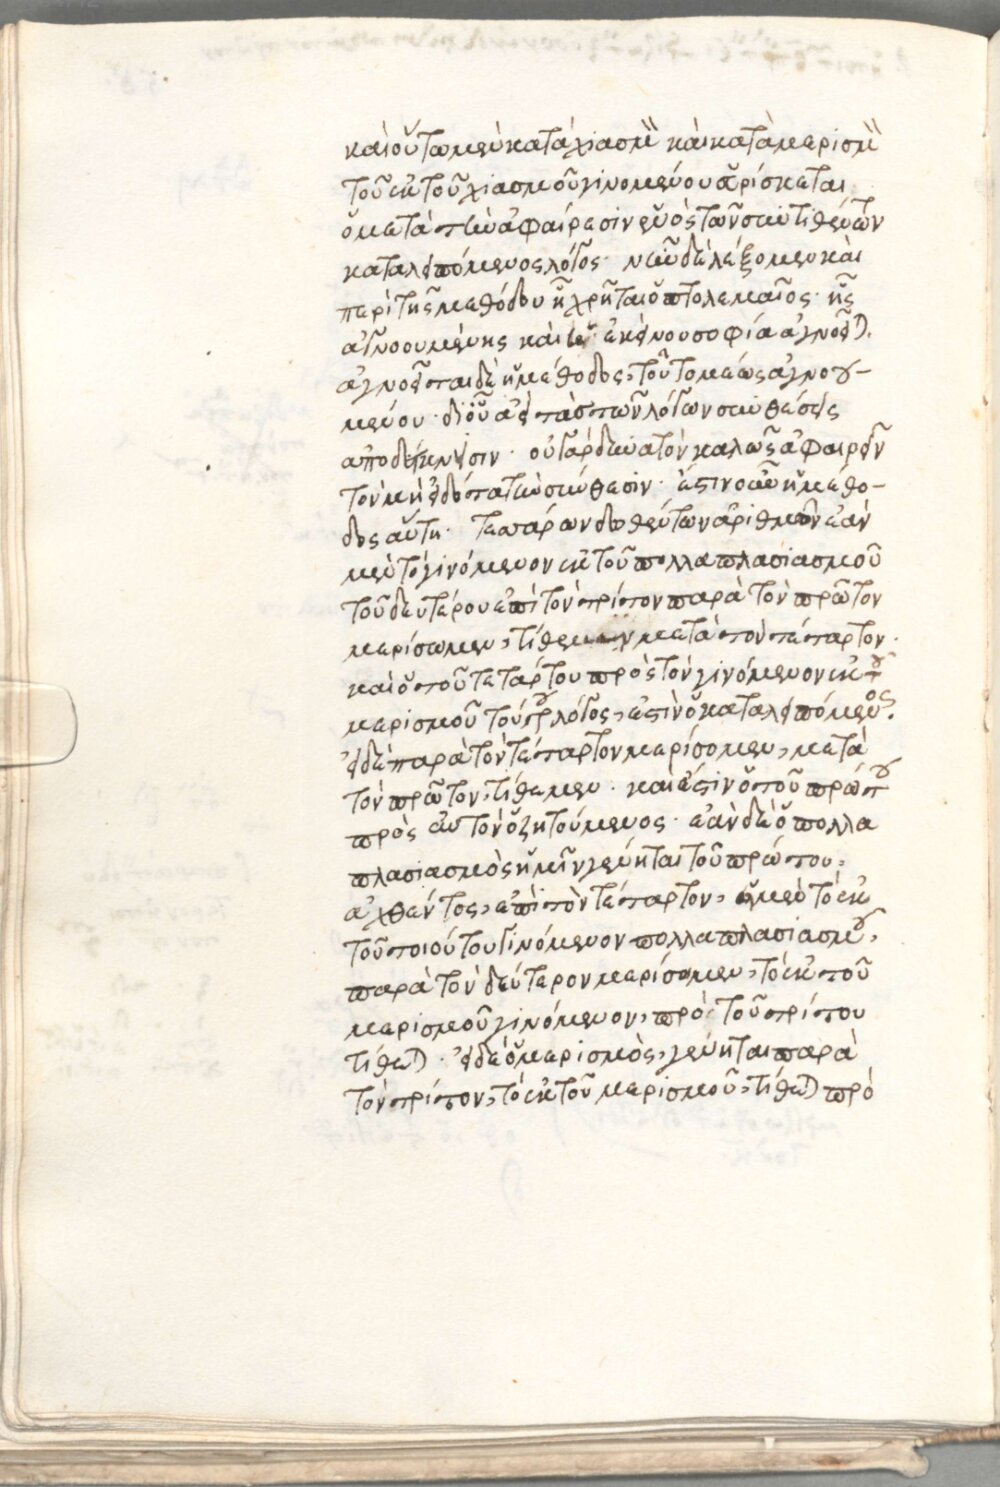 καὶ οὕτω μὲν κατὰ χιασμὸν καὶ κατὰ μερισμὸν
τοῦ ἐκ τοῦ χιασμοῦ γινομένου εὑρίσκεται
ὁ μετὰ τὴν ἀφαίρεσιν ἑνὸς τῶν συντιθέντων
καταλειπόμενος λόγος· νῦν δὲ λέξομεν καὶ
περὶ τῆς μεθόδου ᾗ χρῆται ὁ πτολεμαῖος· ἧς
ἀγνοουμένης καὶ ἡ ἐκείνου σοφία ἀγνοεῖται.
ἀγνοεῖται δὲ ἡ μέθοδος, τοῦ τομέως ἀγνοου-
μένου· δι' οὗ αἱ τῶν λόγων συνθέσεις
ἀποδείκνυσιν· οὐ γὰρ δυνατὸν καλῶς ἀφαιρεῖν
τὸν μὴ εἰδότα τὴν σύνθεσιν· ἔστιν οὖν ἡ μέθο-
δος αὕτη· τεσσάρων δοθέντων ἀριθμῶν ἐὰν
μὲν τὸ γινόμενον ἐκ τοῦ πολλαπλασιασμοῦ
τοῦ δευτέρου ἐπὶ τὸν τρίτον παρὰ τὸν πρῶτον
μερίσωμεν, τίθεμεν μετὰ τὸν τέταρτον·
καὶ ὁ τοῦ τετάρτου πρὸς τὸν γινόμενον ἐκ τοῦ
μερισμοῦ τούτου λόγος, ἐστὶν ὁ καταλειπόμενος.
εἰ δὲ παρὰ τὸν τέταρτον μερίσομεν, μετὰ
τὸν πρῶτον, τίθεμεν· καὶ ἔστιν ὁ τοῦ πρώτου
πρὸς αὐτὸν ὁ ζητούμενος· ἐὰν δὲ ὁ πολλα
πλασιασμὸς ἡμῖν γένηται τοῦ πρώτου,
ἀχθέντος, ἐπὶ τὸν τέταρτον, εἰ μὲν τὸ ἐκ
τοῦ τοιούτου γινόμενον πολλαπλασιασμοῦ,
παρὰ τὸν δεύτερον μερίσομεν, τὸ ἐκ τοῦ
μερισμοῦ γινόμενον, πρὸ τοῦ τρίτου
τίθεται· εἰ δὲ ὁ μερισμὸς, γένηται παρὰ
τὸν τρίτον, τὸ ἐκ τοῦ μερισμοῦ, τίθεται πρὸ